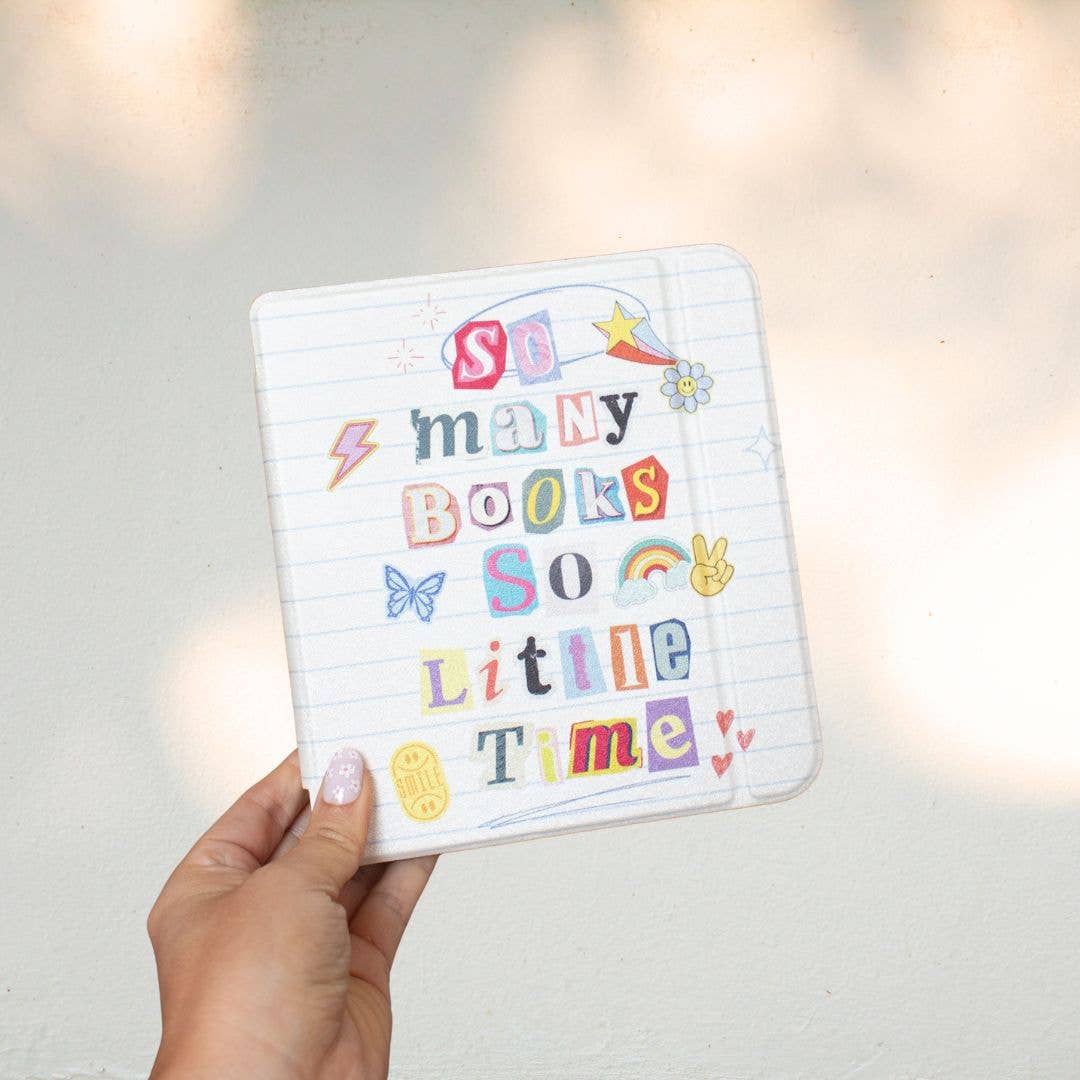 So
maNy
BooKs
So
Little
Time
SMILE